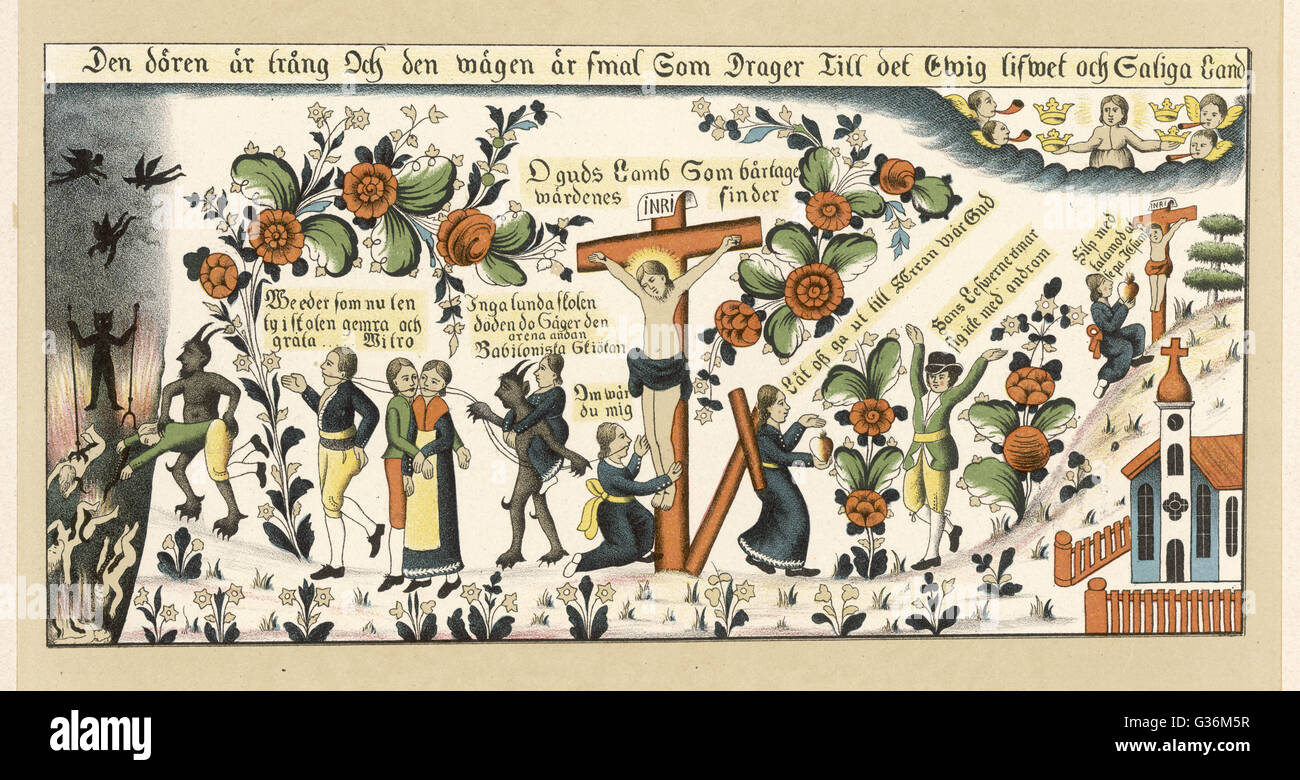 Den dören är trång Och den wägen är smal Som Drager Till det Ewig lifwet och Saliga Land
O guds Lamb Som bårtage
wärdenes sinder
INRI
INRI
We eder som nu len
ty i skolen gemra och
gråta . . . Mitro
Inga lunda skolen
döden do Säger den
arena andan
Babilonista Skiökan
Om wår
du mig
Låt oß ga ut till Herran wår Gud
androm
alamy
alamy
Image ID: G36M5R
www.alamy.com